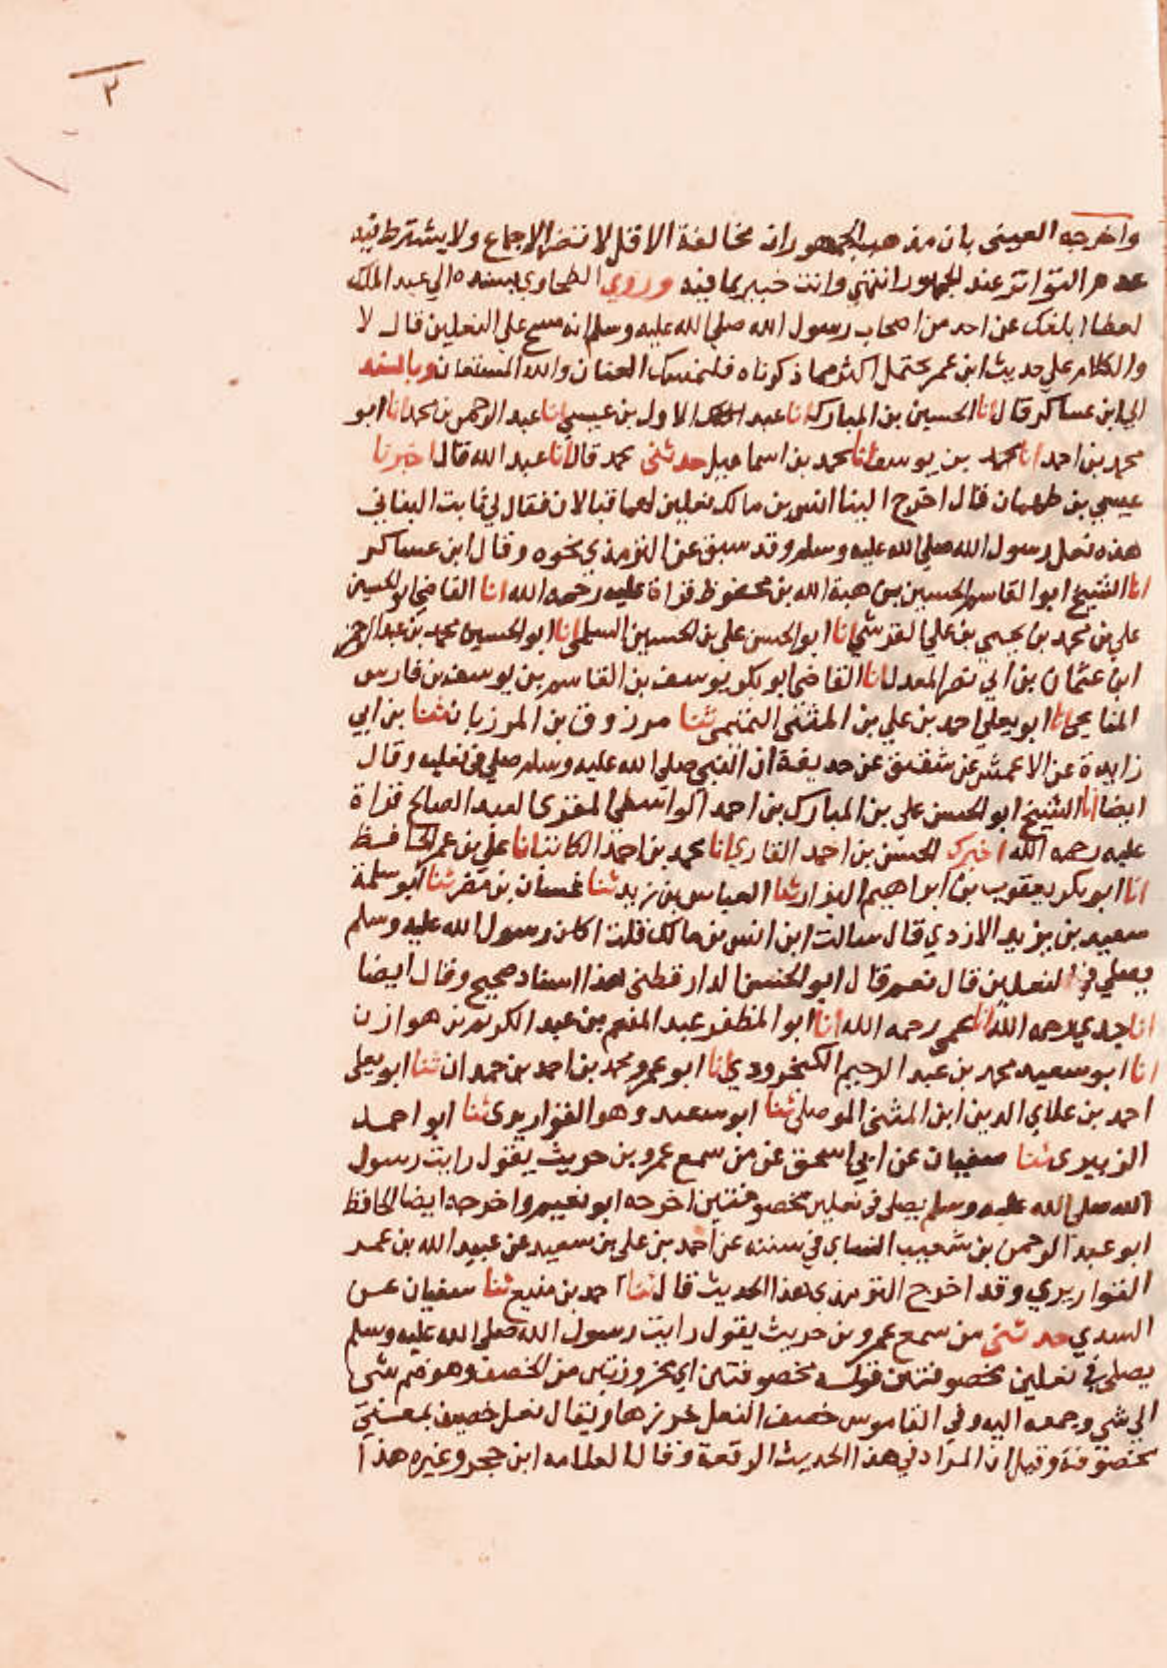 ٣
واخرجه العيني بان مذهب الجمهور ان مخالفة الاقل لا تضر الاجماع ولا يشترط فيه
عدم التواتر عند الجمهور انتهي وانت خبير بما فيه وروي الطحاوي بسنده الي عبد الملك
لعطا ابلغك عن احد من اصحاب رسول الله صلي الله عليه وسلم انه مسح علي النعلين قال لا
والكلام علي حديث ابن عمر يحتمل اكثر مما ذكرناه فلنمسك العنان والله المستعان وبالسند
الي ابن عساكر قال انا الحسين بن المبارك انا عبد الاول بن عيسي انا عبد الرحمن بن محمد انا ابو
محمد بن احمد انا محمد بن يوسف انا محمد بن اسماعيل حدثني محمد قال انا عبد الله قال اخبرنا
عيسي بن طهمان قال اخرج الينا انس بن مالك نعلين لهما قبالان فقال لي ثابت البناني
هذه نعل رسول الله صلي الله عليه وسلم وقد سبق عن الترمذي نحوه وقال ابن عساكر
انا الشيخ ابو القاسم الحسين بن هبة الله بن محفوظ قراة عليه رحمه الله انا القاضي ابو الحسين
علي بن محمد بن يحيي بن علي القرشي انا ابو الحسن علي بن الحسين السلمي انا ابو الحسين محمد بن عبد الرحمن
ابن عثمان بن ابي نصر المعدل انا القاضي ابو بكر يوسف بن القاسم بن يوسف بن فارس
الميانجي انا ابو يعلي احمد بن علي بن المثني التميمي ثنا مرزوق بن المرزبان ثنا بن ابي
زايدة عن الاعمش عن شقيق عن حذيفة ان النبي صلي الله عليه وسلم صلي في نعليه وقال
ايضا انا الشيخ ابو الحسن علي بن المبارك بن احمد الواسطي المقري العبد الصالح قراة
عليه رحمه الله اخبرك الحسن بن احمد القاري انا محمد بن احمد الكاتب انا علي بن عمر الحافظ
انا ابو بكر يعقوب بن ابراهيم البزار ثنا العباس بن يزيد ثنا غسان بن مضر ثنا ابو سلمة
سعيد بن يزيد الازدي قال سالت ابن انس بن مالك قلت اكان رسول الله عليه وسلم
يصلي في النعلين قال نعم قال ابو الحسن الدارقطني هذا اسناد صحيح وقال ايضا
انا جدي رحمه الله انا عمي رحمه الله انا ابو المظفر عبد المنعم بن عبد الكريم بن هوازن
انا ابو سعيد محمد بن عبد الرحيم الكنجرودي انا ابو عمرو محمد بن احمد بن حمدان ثنا ابو يعلي
احمد بن علاي الدين ابن المثني الموصلي ثنا ابو سعيد وهو القواريري ثنا ابو احمد
الزبيري ثنا سفيان عن ابي اسحق عن من سمع عمرو بن حريث يقول رايت رسول
الله صلي الله عليه وسلم يصلي في نعلين مخصوفتين اخرجه ابو نعيم واخرجه ايضا الحافظ
ابو عبد الرحمن بن شعيب النساي في سننه عن احمد بن علي بن سعيد عن عبيد الله بن عمر
القواريري وقد اخرج الترمذي هذا الحديث قال ثنا احمد بن منيع ثنا سفيان عن
السدي حدثني من سمع عمرو بن حريث يقول رايت رسول الله صلي الله عليه وسلم
يصلي في نعلين مخصوفتين قوله مخصوفتين اي مخروزتين من الخصف وهو ضم شي
الي شي وجمعه اليه وفي القاموس خصف النعل خرزها ويقال نعل خصيف بمعني
مخصوفة وقيل ان المراد في هذا الحديث الرقعة وقال العلامه ابن حجر وغيره هذا